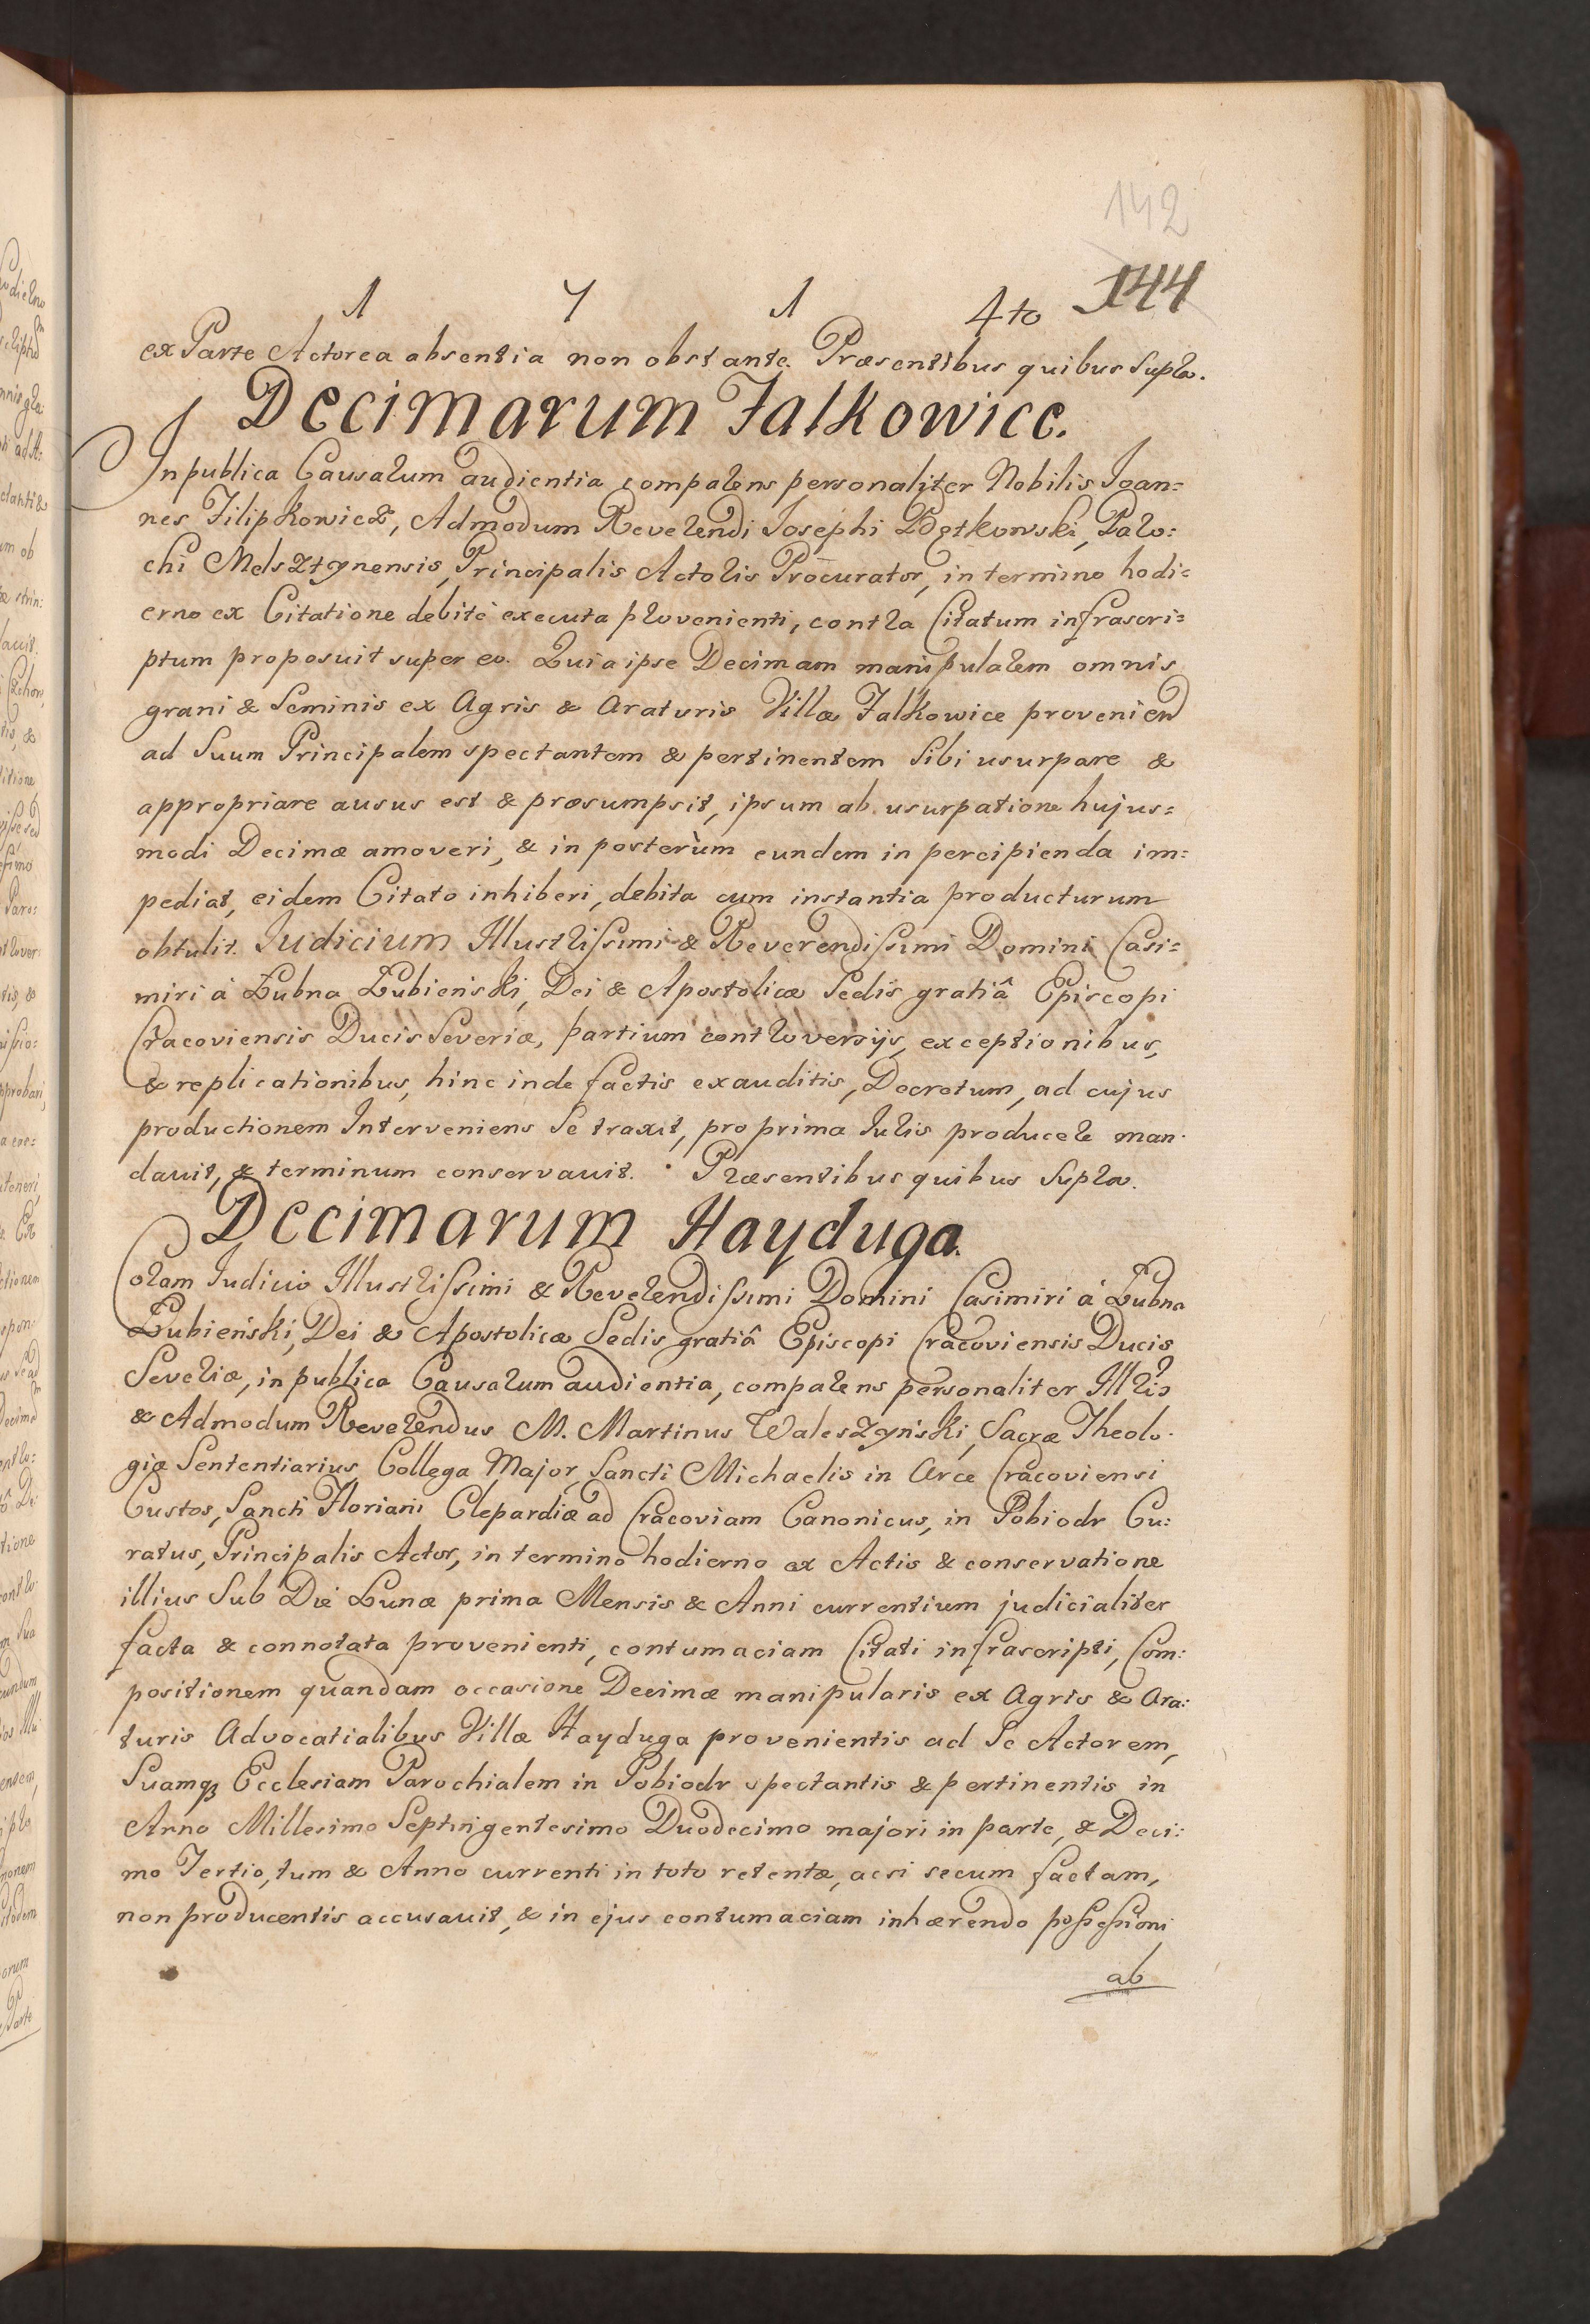 142
1 7 1 4to 144
ex Parte Actorea absentia non obstante. Præsentibus quibus Supra.
Decimarum Falkowice.
In publica Causarum audientia comparens personaliter Nobilis Ioan=
nes Filipkowicz, Admodum Reverendi Josephi Paro:
chi Melsztynensis, Principalis Actoris Procurator, in termino hodi=
erno ex Citatione debitè executa provenienti, contra Citatum infrascri=
ptum proposuit super eo. Quia ipse Decimam manipularem omnis
grani & Seminis ex Agris & Araturis Villæ Falkowice provenien
ad Suum Principalem spectantem & pertinentem Sibi usurpare &
appropriare ausus est & præsumpsit, ipsum ab usurpatione hujus=
modi Decimæ amoveri, & in posterùm eundem in percipienda im=
pediat, eidem Citato inhiberi, debita cum instantia producturum
obtulit. Judicium Illustrissimi & Reverendissimi Domini Casi=
miri à Łubna Łubieński, Dei & Apostolicæ Sedis gratiâ Episcopi
Cracoviensis Ducis Severiæ, partium controversijs, exceptionibus,
& replicationibus, hinc inde factis exauditis, Decretum, ad cujus
productionem Interveniens Se traxit, pro prima Iuris producere man-
davit, & terminum conservavit. Præsentibus quibus Supra.
Decimarum Hayduga.
Coram Judicio Illustrissimi & Reverendissimi Domini Casimiri à Łubna
Łubieński, Dei & Apostolicæ Sedis gratiâ Episcopi Cracoviensis Ducis
Severiæ, in publica Causarum audientia, comparens personaliter Illris
& Admodum Reverendus M. Martinus Waleszyński, Sacræ Theolo-
giæ Sententiarius, Collega Major, Sancti Michaelis in Arce Cracoviensi
Custos, Sancti Floriani Clepardiæ ad Cracoviam Canonicus, in Pobiedr Cu:
ratus, Principalis Actor, in termino hodierno ex Actis & conservatione
illius Sub Die Lunæ prima Mensis & Anni currentium judicialiter
facta & connotata provenienti, contumaciam Citati infrascripti, Com:
positionem quandam occasione Decimæ manipularis ex Agris & Ara:
turis Advocatialibus Villæ Hayduga provenientis ad Se Actorem,
Suamq; Ecclesiam Parochialem in Pobiedr spectantis & pertinentis in
Anno Millesimo Septingentesimo Duodecimo majori in parte, & Deci:
mo Tertio, tum & Anno currenti in toto retentæ, acsi secum factam,
non producentis accusavit, & in ejus contumaciam inhærendo possessioni
ab